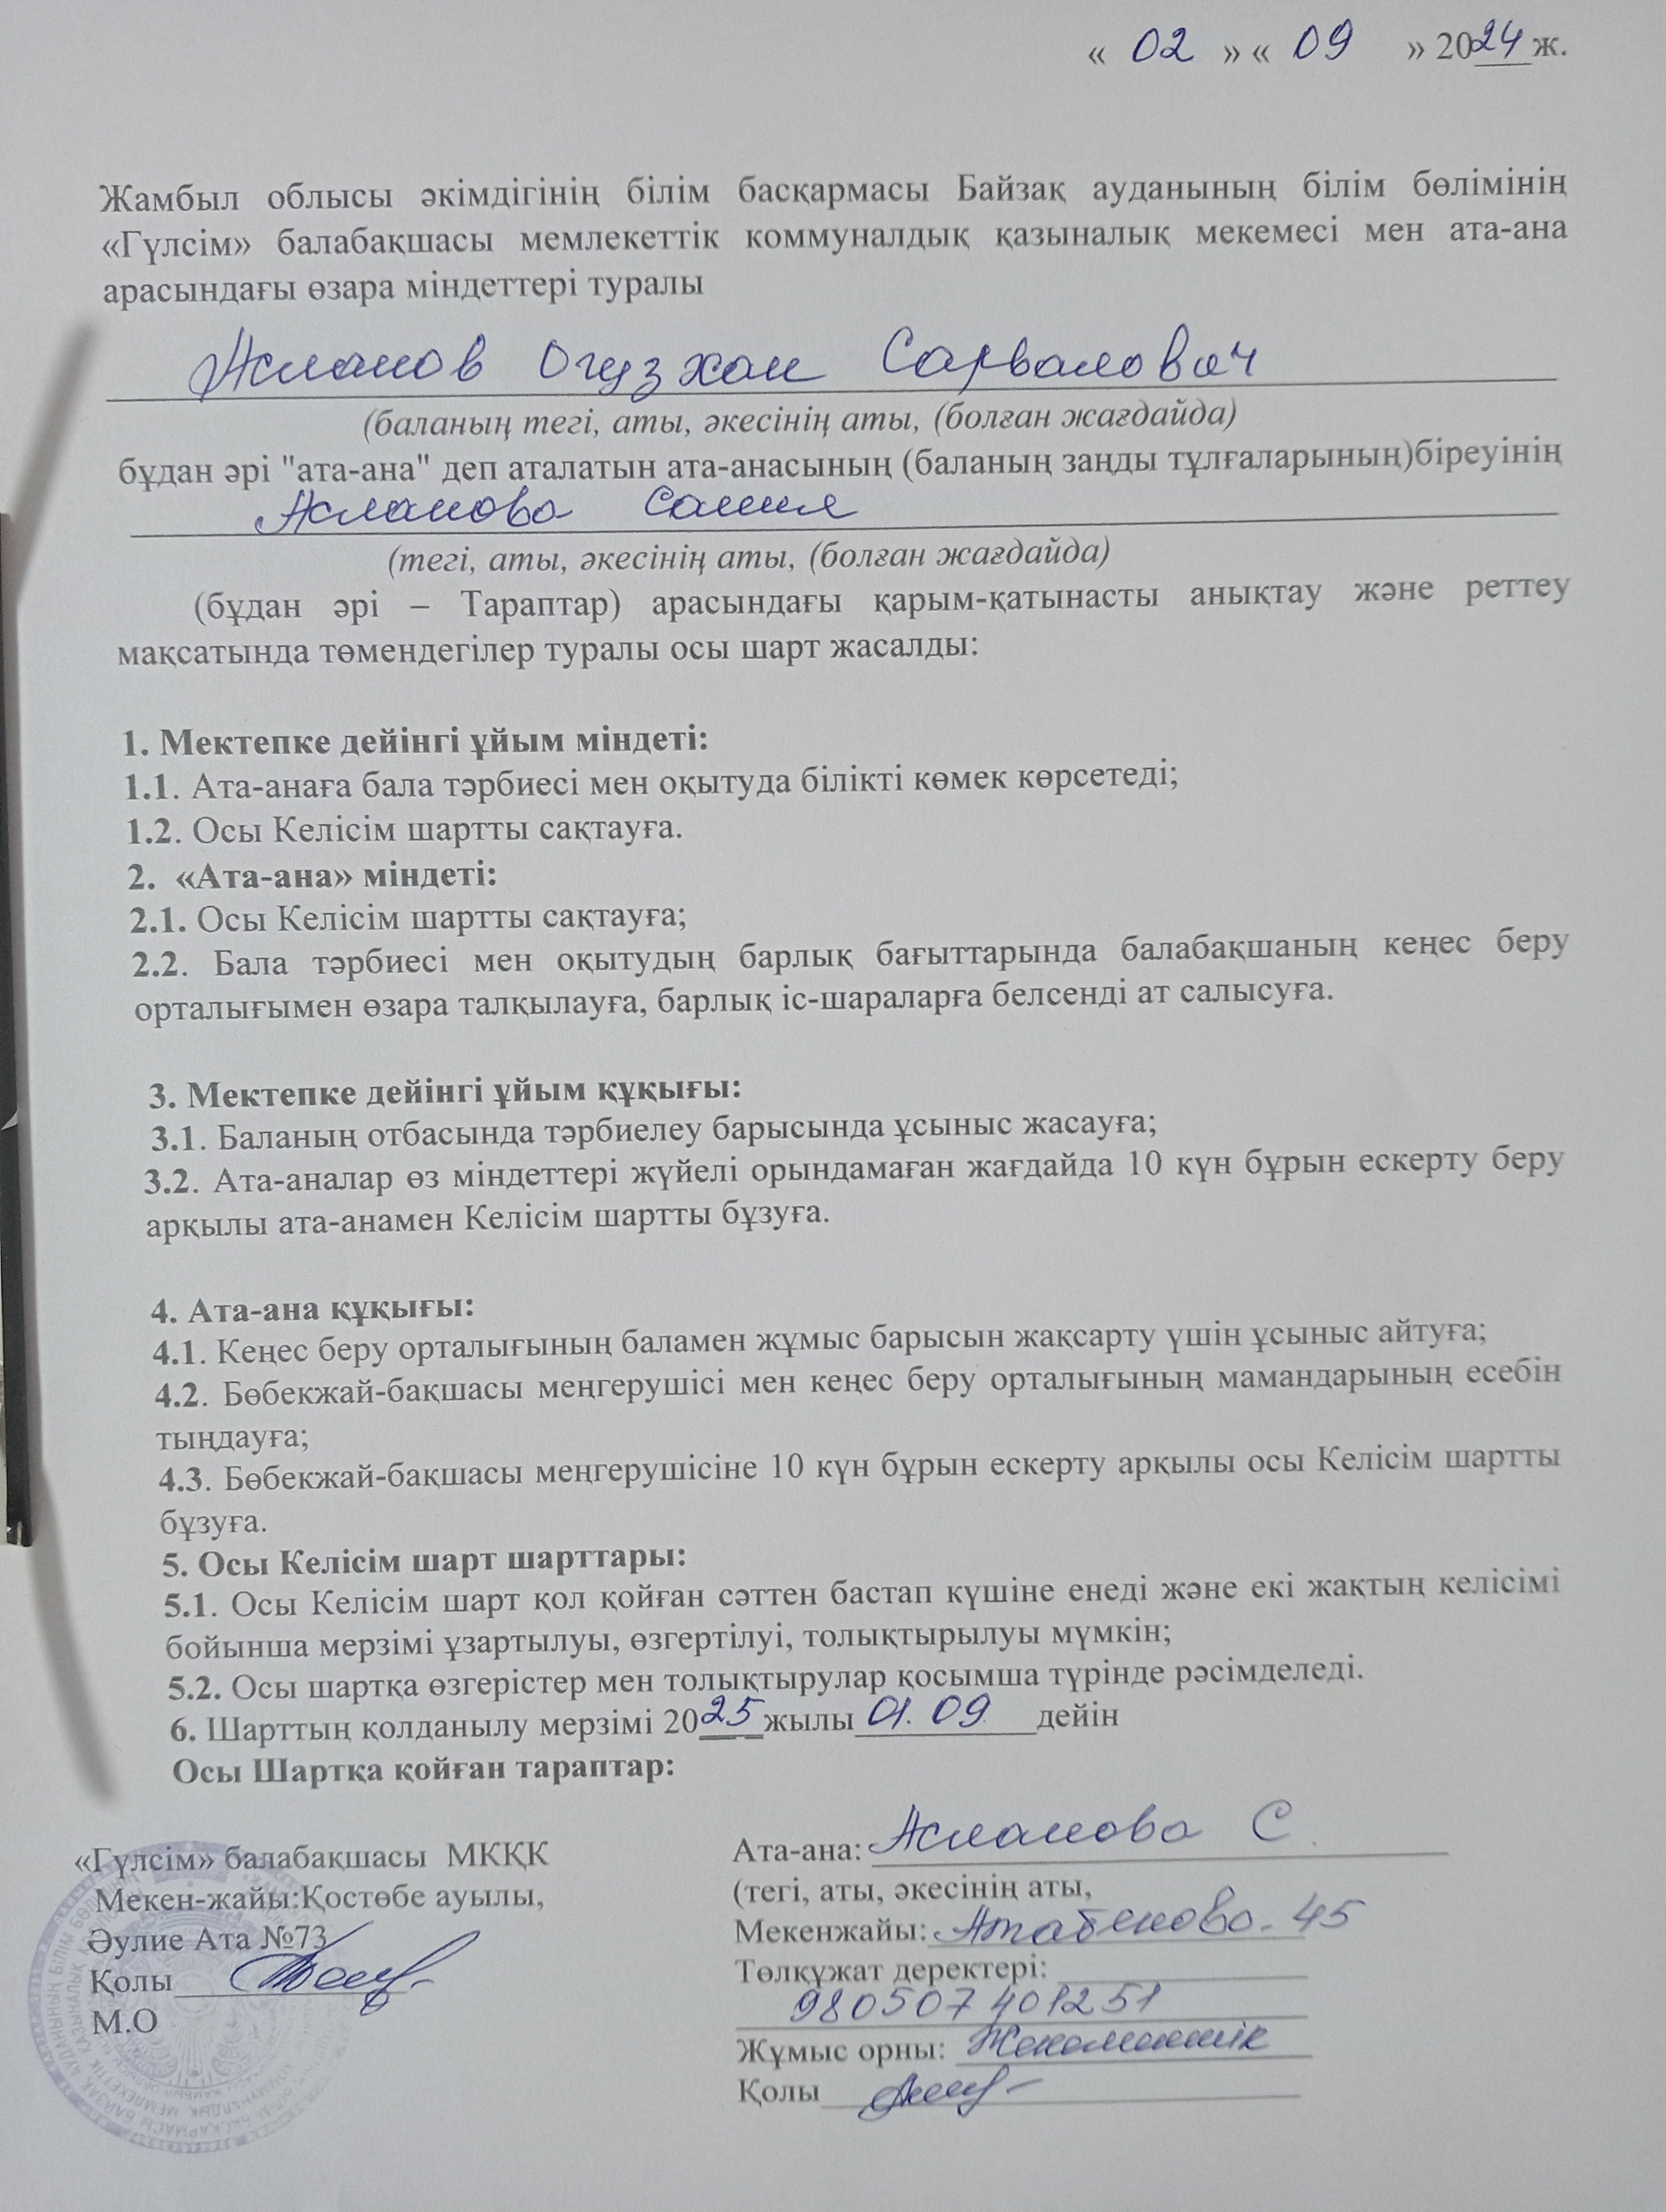 « 02 » « 09 » 2024 ж.
Жамбыл облысы әкімдігінің білім басқармасы Байзақ ауданының білім бөлімінің
«Гүлсім» балабақшасы мемлекеттік коммуналдық қазыналық мекемесі мен ата-ана
арасындағы өзара міндеттері туралы
Асланов Огузхан Сарвалович
(баланың тегі, аты, әкесінің аты, (болған жағдайда)
бұдан әрі "ата-ана" деп аталатын ата-анасының (баланың заңды тұлғаларының)біреуінің
Асланова
(тегі, аты, әкесінің аты, (болған жағдайда)
(бұдан әрі – Тараптар) арасындағы қарым-қатынасты анықтау және реттеу
мақсатында төмендегілер туралы осы шарт жасалды:
1. Мектепке дейінгі ұйым міндеті:
1.1. Ата-анаға бала тәрбиесі мен оқытуда білікті көмек көрсетеді;
1.2. Осы Келісім шартты сақтауға.
2. «Ата-ана» міндеті:
2.1. Осы Келісім шартты сақтауға;
2.2. Бала тәрбиесі мен оқытудың барлық бағыттарында балабақшаның кеңес беру
орталығымен өзара талқылауға, барлық іс-шараларға белсенді ат салысуға.
3. Мектепке дейінгі ұйым құқығы:
3.1. Баланың отбасында тәрбиелеу барысында ұсыныс жасауға;
3.2. Ата-аналар өз міндеттері жүйелі орындамаған жағдайда 10 күн бұрын ескерту беру
арқылы ата-анамен Келісім шартты бұзуға.
4. Ата-ана құқығы:
4.1. Кеңес беру орталығының баламен жұмыс барысын жақсарту үшін ұсыныс айтуға;
4.2. Бөбекжай-бақшасы меңгерушісі мен кеңес беру орталығының мамандарының есебін
тыңдауға;
4.3. Бөбекжай-бақшасы меңгерушісіне 10 күн бұрын ескерту арқылы осы Келісім шартты
бұзуға.
5. Осы Келісім шарт шарттары:
5.1. Осы Келісім шарт қол қойған сәттен бастап күшіне енеді және екі жақтың келісімі
бойынша мерзімі ұзартылуы, өзгертілуі, толықтырылуы мүмкін;
5.2. Осы шартқа өзгерістер мен толықтырулар қосымша түрінде рәсімделеді.
6. Шарттың қолданылу мерзімі 2025 жылы 01.09. дейін
Осы Шартқа қойған тараптар:
«Гүлсім» балабақшасы МКҚК
Мекен-жайы:Қостөбе ауылы,
Әулие Ата №73
Қолы
М.О
Ата-ана: Асланова С.
(тегі, аты, әкесінің аты,
Мекенжайы: 45
Төлқұжат деректері:
980507401251
Жұмыс орны:
Қолы